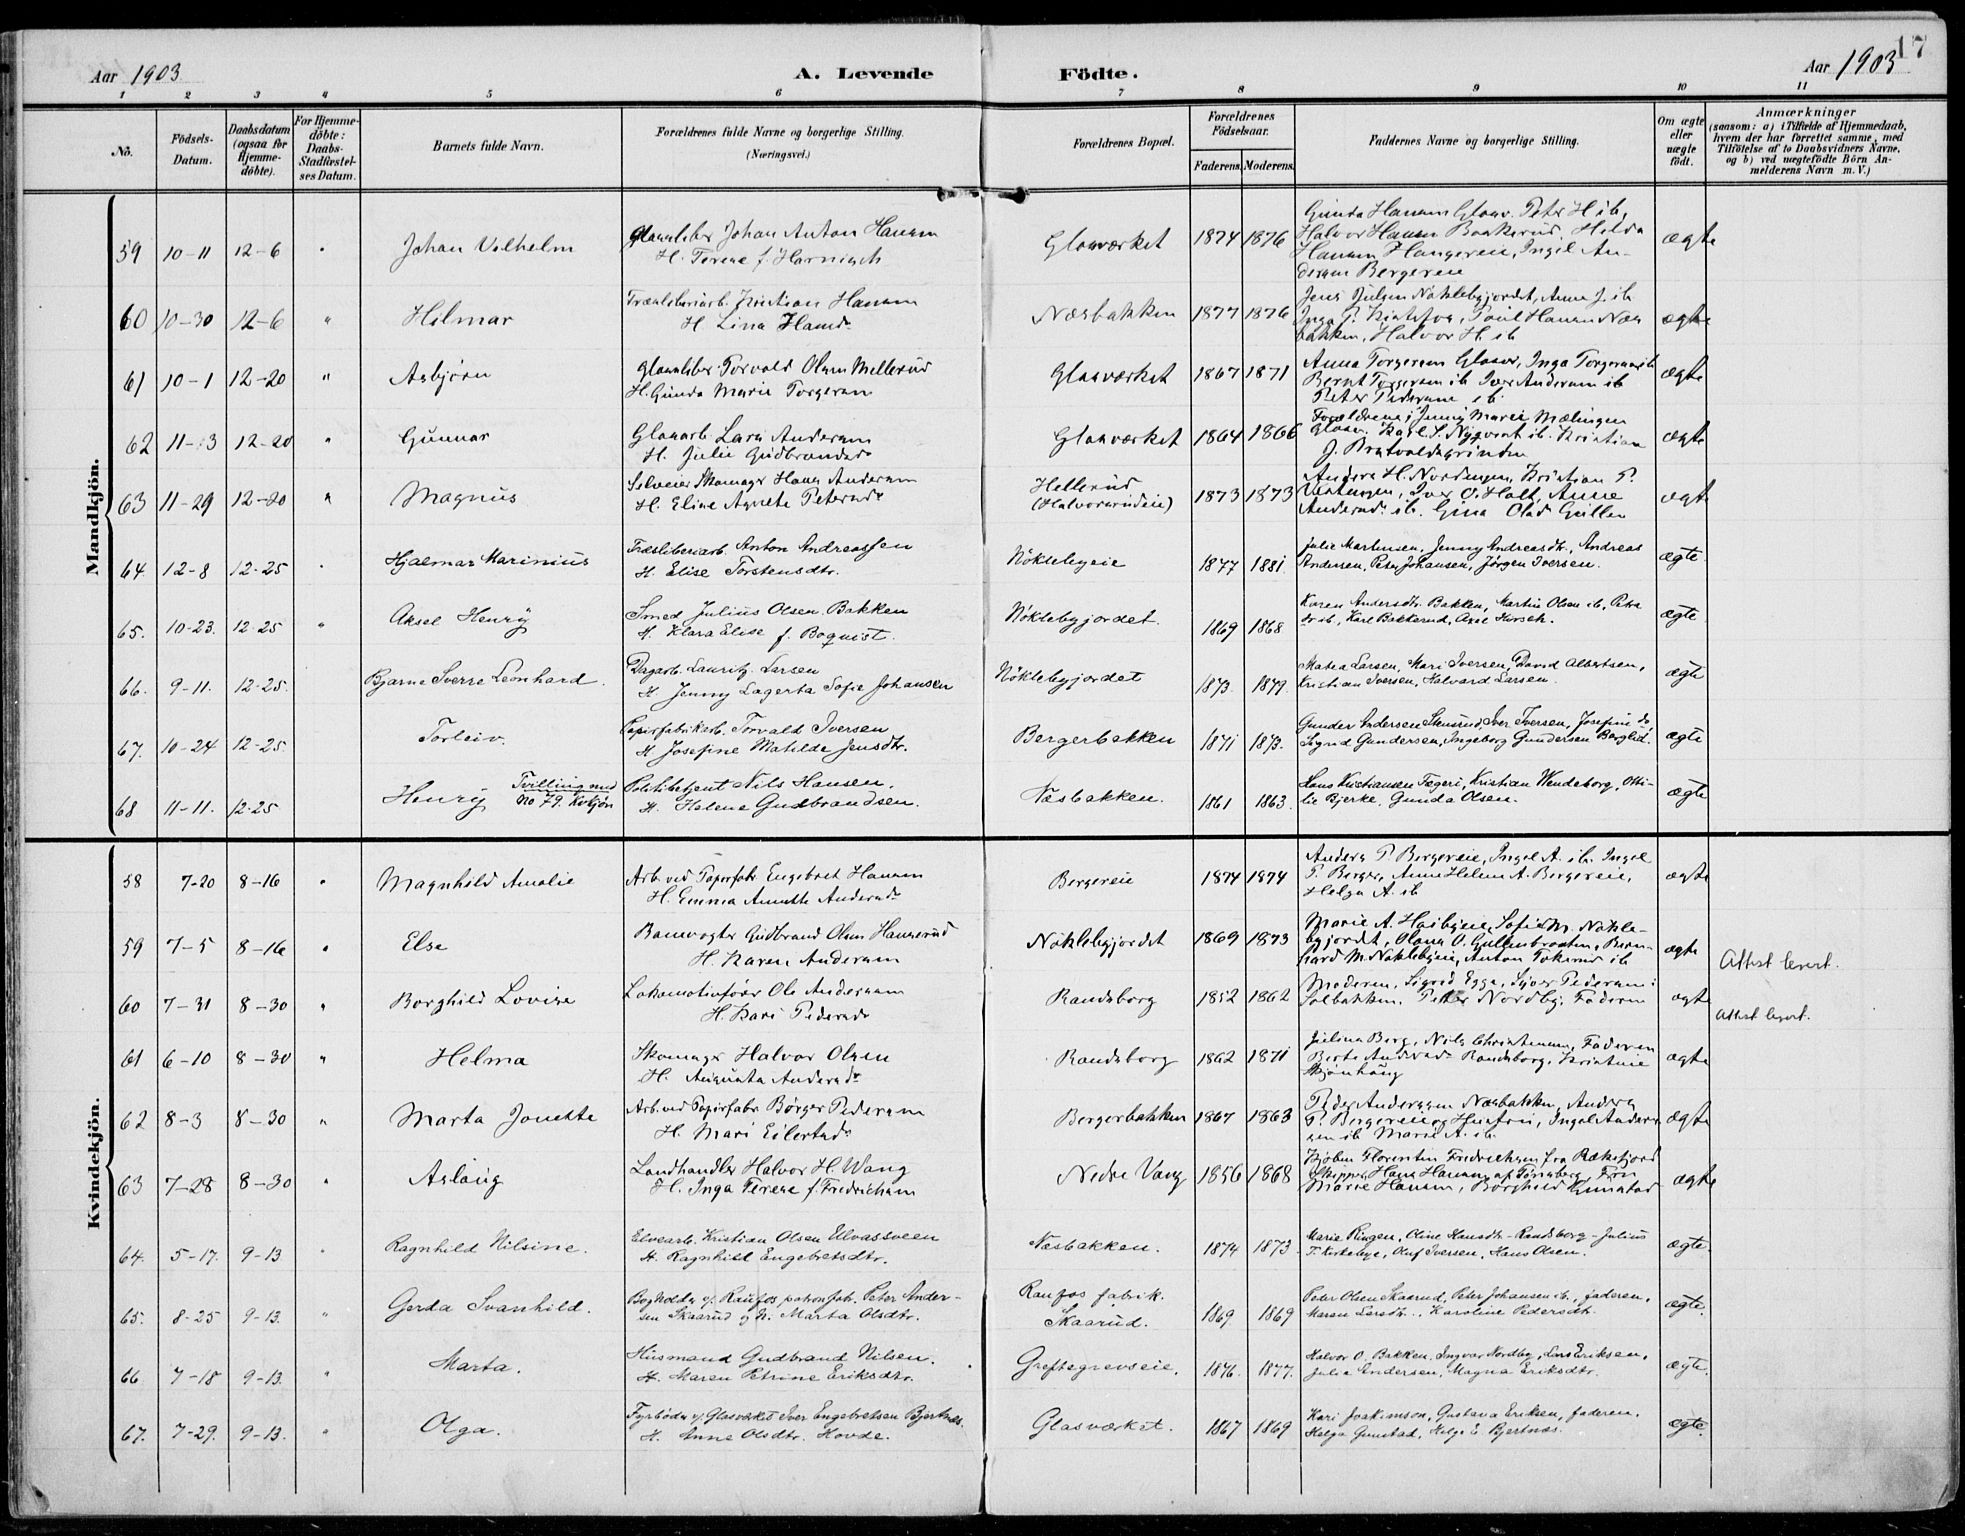 17
Aar 1903
A. Levende Födte.
Aar 1903
1 2 3 4 5 6 7 8 9 10 11
No.
Födsels-Datum.
Daabsdatum (ogsaa for Hjemme-döbte).
For Hjemme-döbte: Daabs-Stadfæstel-ses Datum.
Barnets fulde Navn.
Forældrenes fulde Navne og borgerlige Stilling.
(Næringsvei.)
Forældrenes Bopæl.
Forældrenes Födselsaar.
Faderens. Moderens.
Faddernes Navne og borgerlige Stilling.
Om ægte eller uægte födt.
Anmærkninger
(saasom: a) i Tilfælde af Hjemmedaab, hvem der har forrettet samme, med Tilföielse af to Daabsvidners Navne, og b) ved uægtefödte Börn An-melderens Navn m. V.)
Mandkjön.
59 10-11 12-6 " Johan Vilhelm Johan Anton Hansen Glasværket 1874 1876 Gunda Hansen Glasv. Peter H ib, ægte
H. Terese f. Harnisch Halvor Hansen Bakkerud, Hilda
Hansen Haugereie, Ingel An-
dersen Bergereie
60 10-30 12-6 " Hilmar Træsliberiarb. Kristian Hansen Næsbakken 1877 1876 Jens Julsen Nöklebyjordet, Anne J. ib ægte
H. Lina Hansdr Paul Hansen Næs
bakken, Halvor H. ib
61 10-1 12-20 " Asbjörn Glassliber Torvald Olsen Mellerud Glasværket 1867 1871 Anna Torgersen Glasv., Inga Torgersen ib ægte
H. Gunda Marie Torgersen Bernt Torgersen ib Iver Andersen ib
Peter Pedersen ib.
62 11-13 12-20 " Gunnar Glasarb. Lars Andersen Glasværket 1864 1866 Forældrene, Jenny Marie Mælingen ægte
H. Julie Gudbrandsdr Glasv. Karl S. Nyqvist ib. Kristian
J. Bratvoldsgrinden
63 11-29 12-20 " Magnus Selveier Skomager Hans Andersen Hellerud 1873 1873 Anders H. Nordengen, Kristian P. ægte
H. Eline Agnete Petersdr (Halvorsrudeie) Iver O. Holt, Anne
Andersdr ib. Gina Olsd Gullen
64 12-8 12-25 Hjalmar Marinius Træsliberiarb. Anton Andreassen Nöklebyeie 1877 1881 Julie Martinsen, Jenny Andreasdtr., Andreas ægte
H. Elise Torstensdtr. Andersen, Peter Johansen, Jörgen Iversen.
65. 10-23. 12-25 " Aksel Henry Smed Julius Olsen Bakken Nöklebyjordet. 1869 1868 Karen Andersdtr. Bakken, Martin Olsen ib, Petra ægte
H. Klara Elise f. Boquist. do ib, Karl Bakkerud, Axel Hirsch.
66. 9-11. 12-25. Bjarne Sverre Leonhard. Dagarb. Lauritz Larsen Nöklebyjordet 1873. 1879. Matea Larsen, Mari Iversen, David Albertsen, ægte
H. Jenny Lagerta Sofie Johansen Kristian Iversen, Halvard Larsen.
67. 10-24 12-25. Torleiv. Papirfabrikarb. Torvald Iversen Bergerbakken 1871 1873. Gunder Andersen Skusrud, Iver Iversen, Josefine do, ægte
H. Josefine Matilde Jensdtr. Sigrid Gundersen, Ingeborg Gundersen Berglid.
68 11-11. 12-25 Henry Tvilling med No 79. Kvkjön Politibetjent Nils Hansen. Næsbakken. 1861 1863 Hans Kristiansen Fægeri, Kristian Wendeborg, Otti- ægte
H. Helene Gudbrandsen. lie Bjerke, Gunda Olsen.
Kvindekjön.
58 7-20 8-16 " Magnhild Amalie Arb. ved Papirfabr. Engebret Hansen Bergereie 1874 1874 Anders P. Bergereie, Ingel A. ib. Ingel ægte
H. Emma Anette Andersdr P. Berger, Anne Helene A. Bergereie,
Helga A. ib
59 7-5 8-16 " Else Banevogter Gudbrand Olsen Haugerud Nöklebyjordet 1869 1873 Marie A. Hasbyeie, Sofie M. Nökle- ægte Attest levert.
H. Karen Andersen byjordet, Olaus O. Gullenbraaten, Bern-
hard M. Nöklebyeie, Anton Tokerud ib
60 7-31 8-30 " Borghild Lovise Lokomotivförer Ole Andersen Randsborg 1852 1862 Moderen, Sigrid Egge, Syver Pedersen ægte Attest levert.
H. Kari Pedersdr Solbakken, Peter Nordby, Faderen
61 6-10 8-30 " Helma Skomager Halvor Olsen Randsborg 1862 1871 Julina Berg, Nils Christensen, Faderen ægte
H. Augusta Andersdr Berte Andersdr Randsborg, Kristine
Skjönhaug
62 8-3 8-30 " Marta Jonette Arb. ved Papirfabr. Börger Pedersen Bergerbakken 1867 1863 Peder Andersen Næsbakken, Anders ægte
H. Mari Eilertsdr P. Bergereie og Hustru, Ingel Anders
sen ib Marie A. ib.
63 7-28 8-30 " Aslaug Landhandler Halvor H. Wang Nedre Vang 1856 1868 Kjöbm Florentin Fredrichsen fra Rækefjord ægte
H. Inga Terese f. Fredrichsen Skipper Hans Hansen af Tönsberg, Frk
Marie Hansen, Borghild Gunstad
64. 5-17. 9-13 " Ragnhild Nilsine. Elvearb. Kristian Olsen Ulvassveen Næsbakken. 1874 1873 Marie Ringen, Oline Hansdtr. Randsborg, Julius ægte.
H. Ragnhild Engebretsdtr. T. Kirkebye, Oluf Iversen, Hans Olsen.
65. 8-25 9-13 " Gerda Svanhild. Bogholder v/ Raufos patronfab. Peter Ander- Raufos fabrik. 1869 1869 Peter Olsen Skaarud, Peter Johansen ib., faderen, ægte.
sen Skaarud og H. Marta Olsdtr. Skaarud. Maren Larsdtr., Karoline Pedersdtr.
66 7-18 9-13 " Marta. Husmand Gudbrand Nilsen. Greftegrevseie. 1876. 1877. Halvor O. Bakken, Ingvar Nordby, Lars Eriksen, ægte
H. Maren Petrine Eriksdtr. Julie Andersen, Magna Eriksdtr.
67. 7-29. 9-13. " Olga. Fyrböder v/ Glasværket Iver Engebretsen Bjertnæs. Glasværket. 1867 1869 Kari Joakimson, Gustava Eriksen, faderen, ægte.
H. Anne Olsdtr. Hovde. Helga Gunstad, Helge E. Bjertnæs.